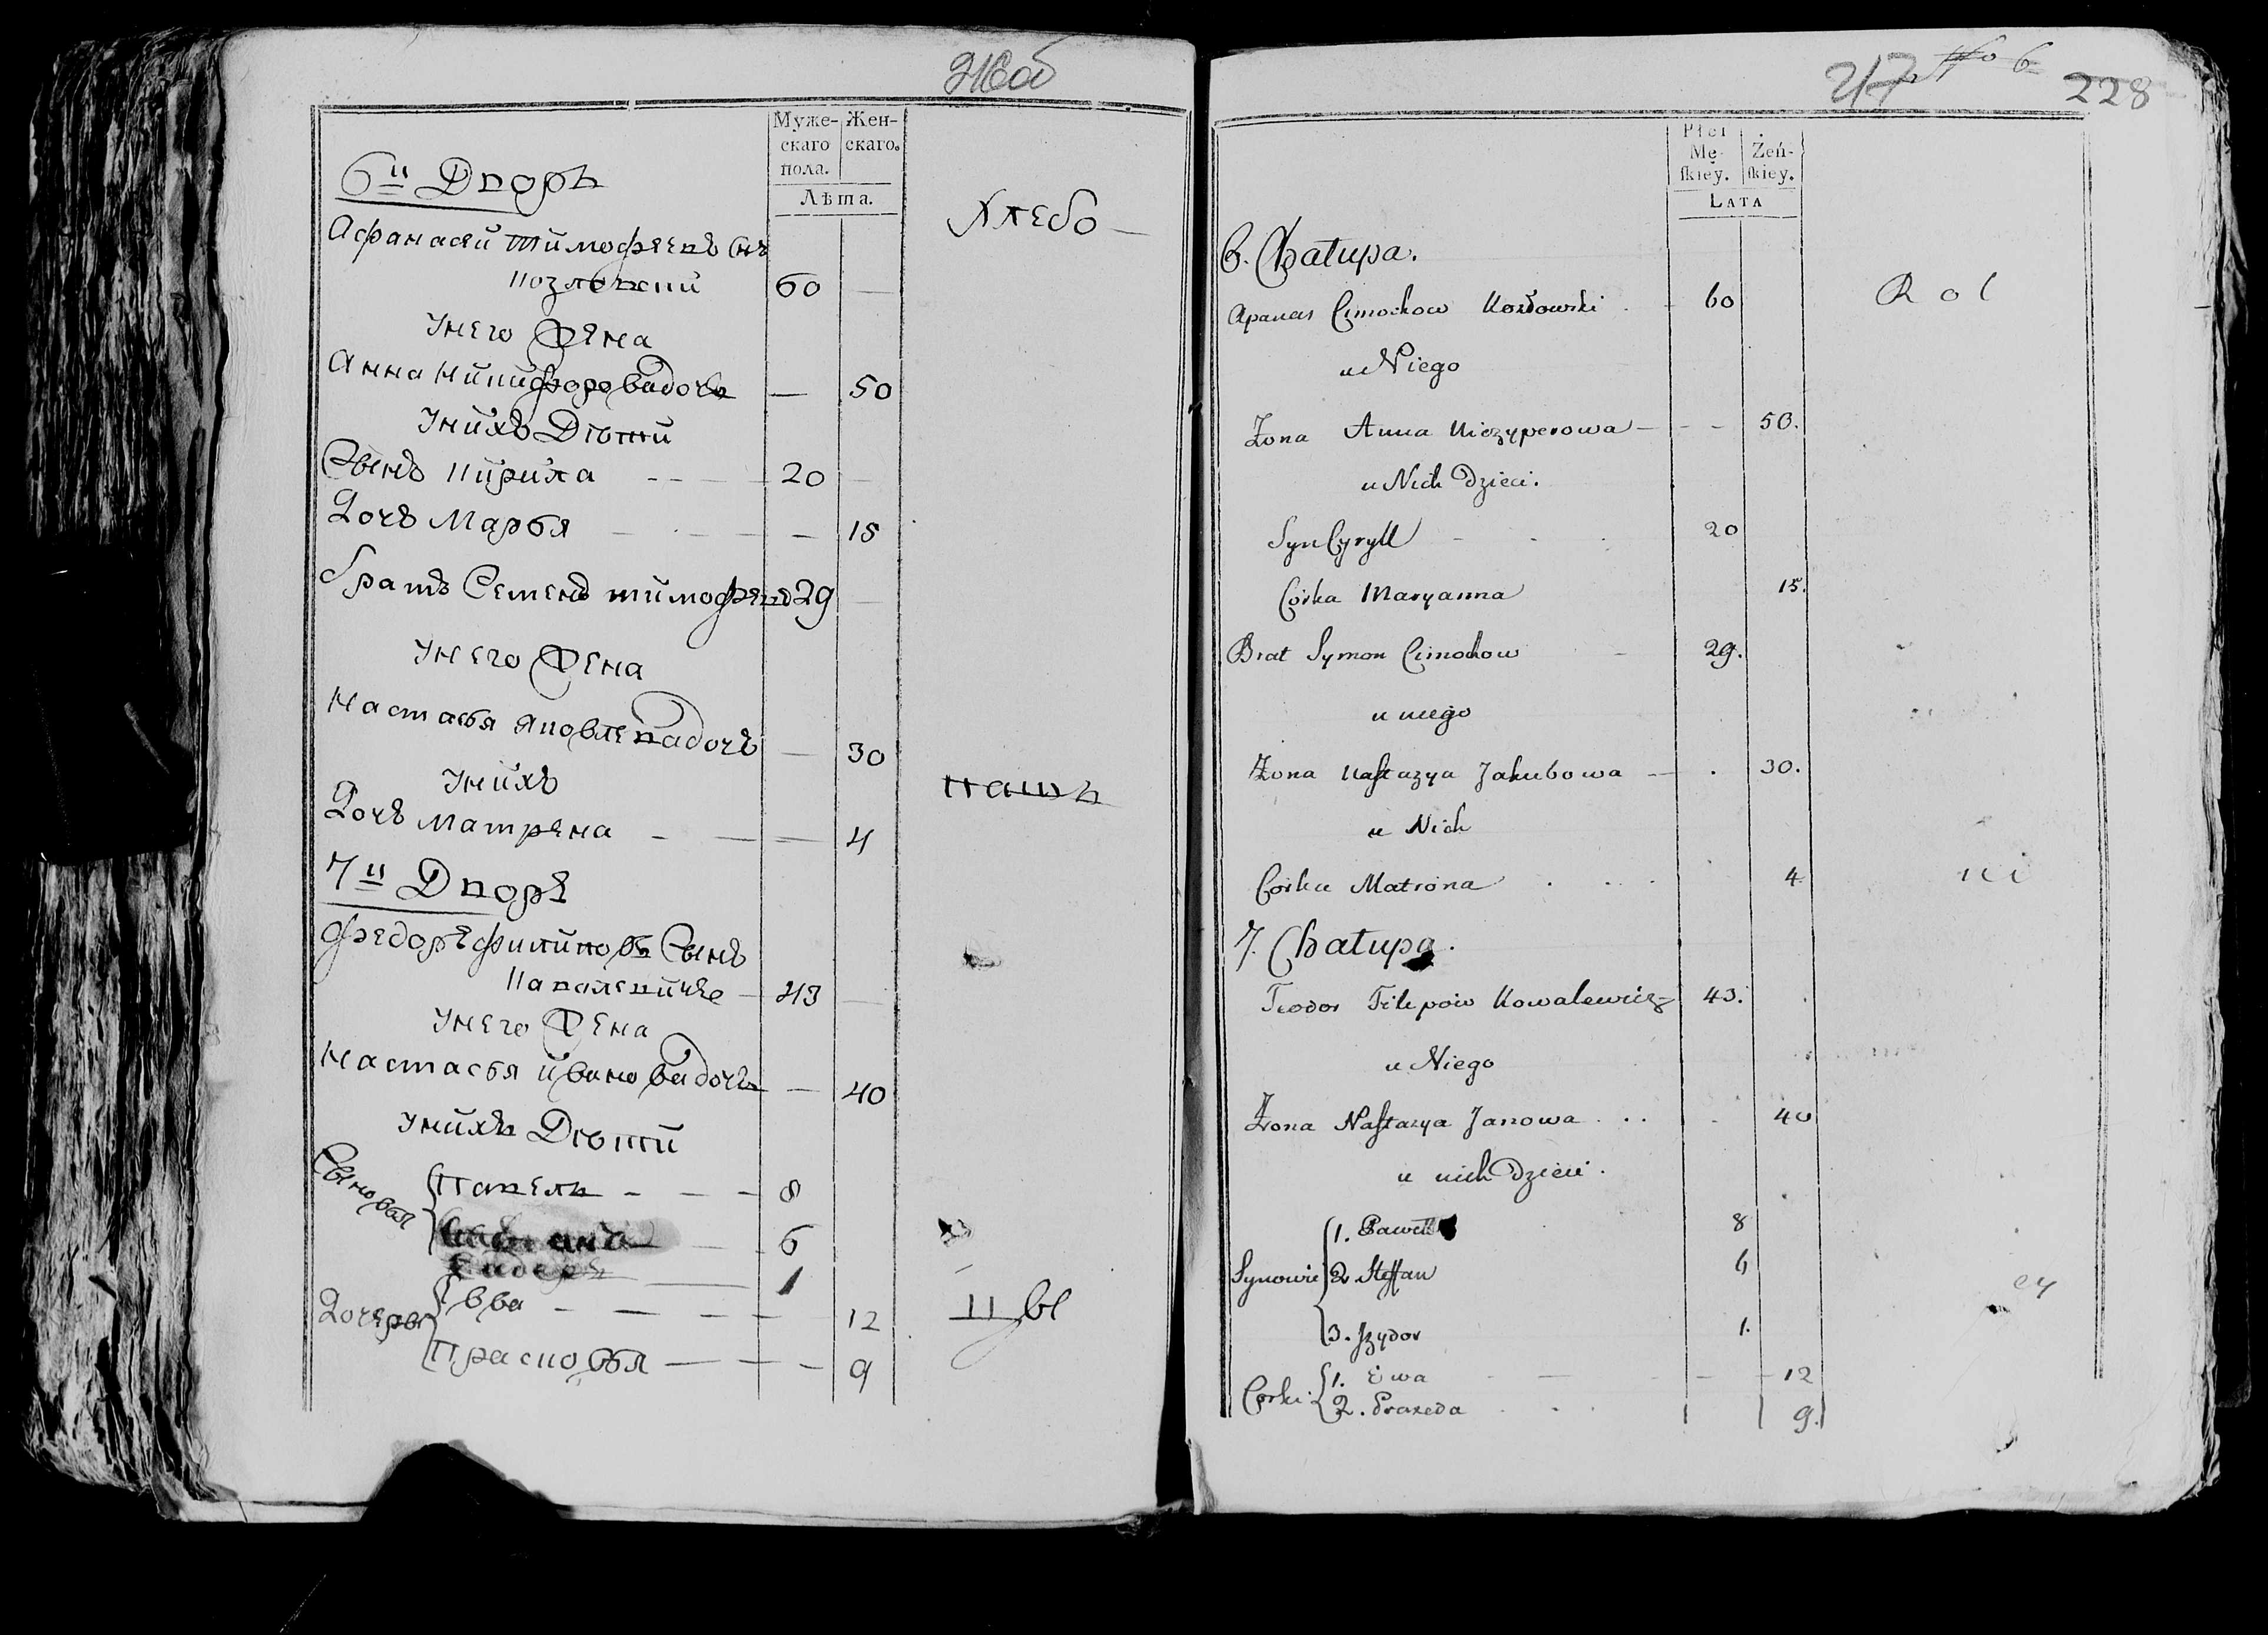 216об
Муже- Жен-
скаго скаго.
пола.
Лѣта.
6й Дворъ
Хлебо
Афанасей Тимофеевъ Снъ
Козловский 60
Унего Жена
Анна Никифорова дочь 50
Унихъ Дѣти
Сынъ Кирила 20
Дочъ Марья 15
братъ Семенъ тимофеевъ 29
Унего Жена
Настасья яковлева дочъ 30
Унихъ
пашъ
Дочъ матрена 4
7й Дворъ
Федоръ филиповъ Сынъ
43
Унего Жена
Настасья иванова дочь 40
Унихъ Дѣти
Сыновья Павелъ 8
6
Сидоръ 1
Дочери Ева 12
цы
Прасковья 9
217 № 6 228
Płci
Mę- Żeń-
ſkiey. ſkiey.
LATA
6. Chatupa.
Apanas Cimochow Kozłowski 60
Rol
u Niego
Żona Anna Niczyperowa 50.
u Nich Dzieci.
Syn Cyryll 20
Corka Maryanna 15.
Brat Symon Cimochow 29.
u niego
Żona Naſtazya Jakubowa 30.
u Nich
Corka Matrona 4
ni
7. Chatupa.
Teodor Filipow Kowalewicz 43.
u Niego
Żona Naſtazya Janowa 40
u nich Dzieci.
Synowie 1. Paweł 8
2. Steffan 6
cy
3. Jzydor 1.
Corki 1. Ewa 12
2. Praxeda 9.